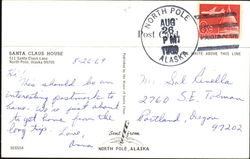 SANTA CLAUS HOUSE
North Pole, Alaska 99705
8-26-69
Hi,
This should be an
interesting postmark to
have. We're just about
to get home from the
long trip. Love,
Anna
NORTH POLE
AUG
26
PM
1969
ALASKA
Post
WRITE ABOVE THIS LINE
Mr. Sol Kinella
2760 S.E. Tolman
Portland, Oregon
97202
Sent from
NORTH POLE, ALASKA